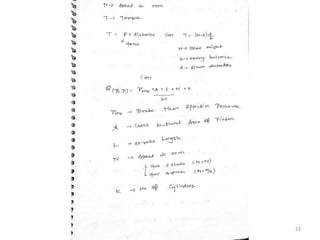 N → Speed in rpm
T → Torque
T = F × distance (or) T = (w-s) d/2
Force
W → Dead weight
S → Spring balance
d → Drum diameter
(or)
(B.P) = Pme × A × L × N × K
Pme → Brake Mean Effective Pressure
A → Cross Sectional Area of Piston
L → Stroke Length
N → Speed in rpm
for 2 stroke (N=N)
for 4 stroke (N=N/2)
K → No of Cylinders
23